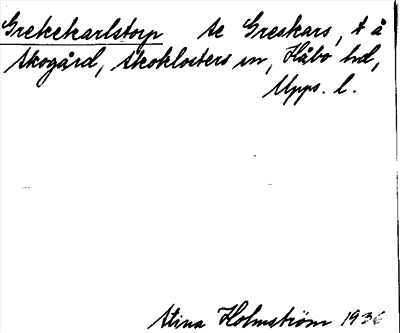 Grekekarlstorp se Greskars, t å
Skogård, Skoklosters sn, Håbo hd,
Upps. l.
Stina Holmström 1936